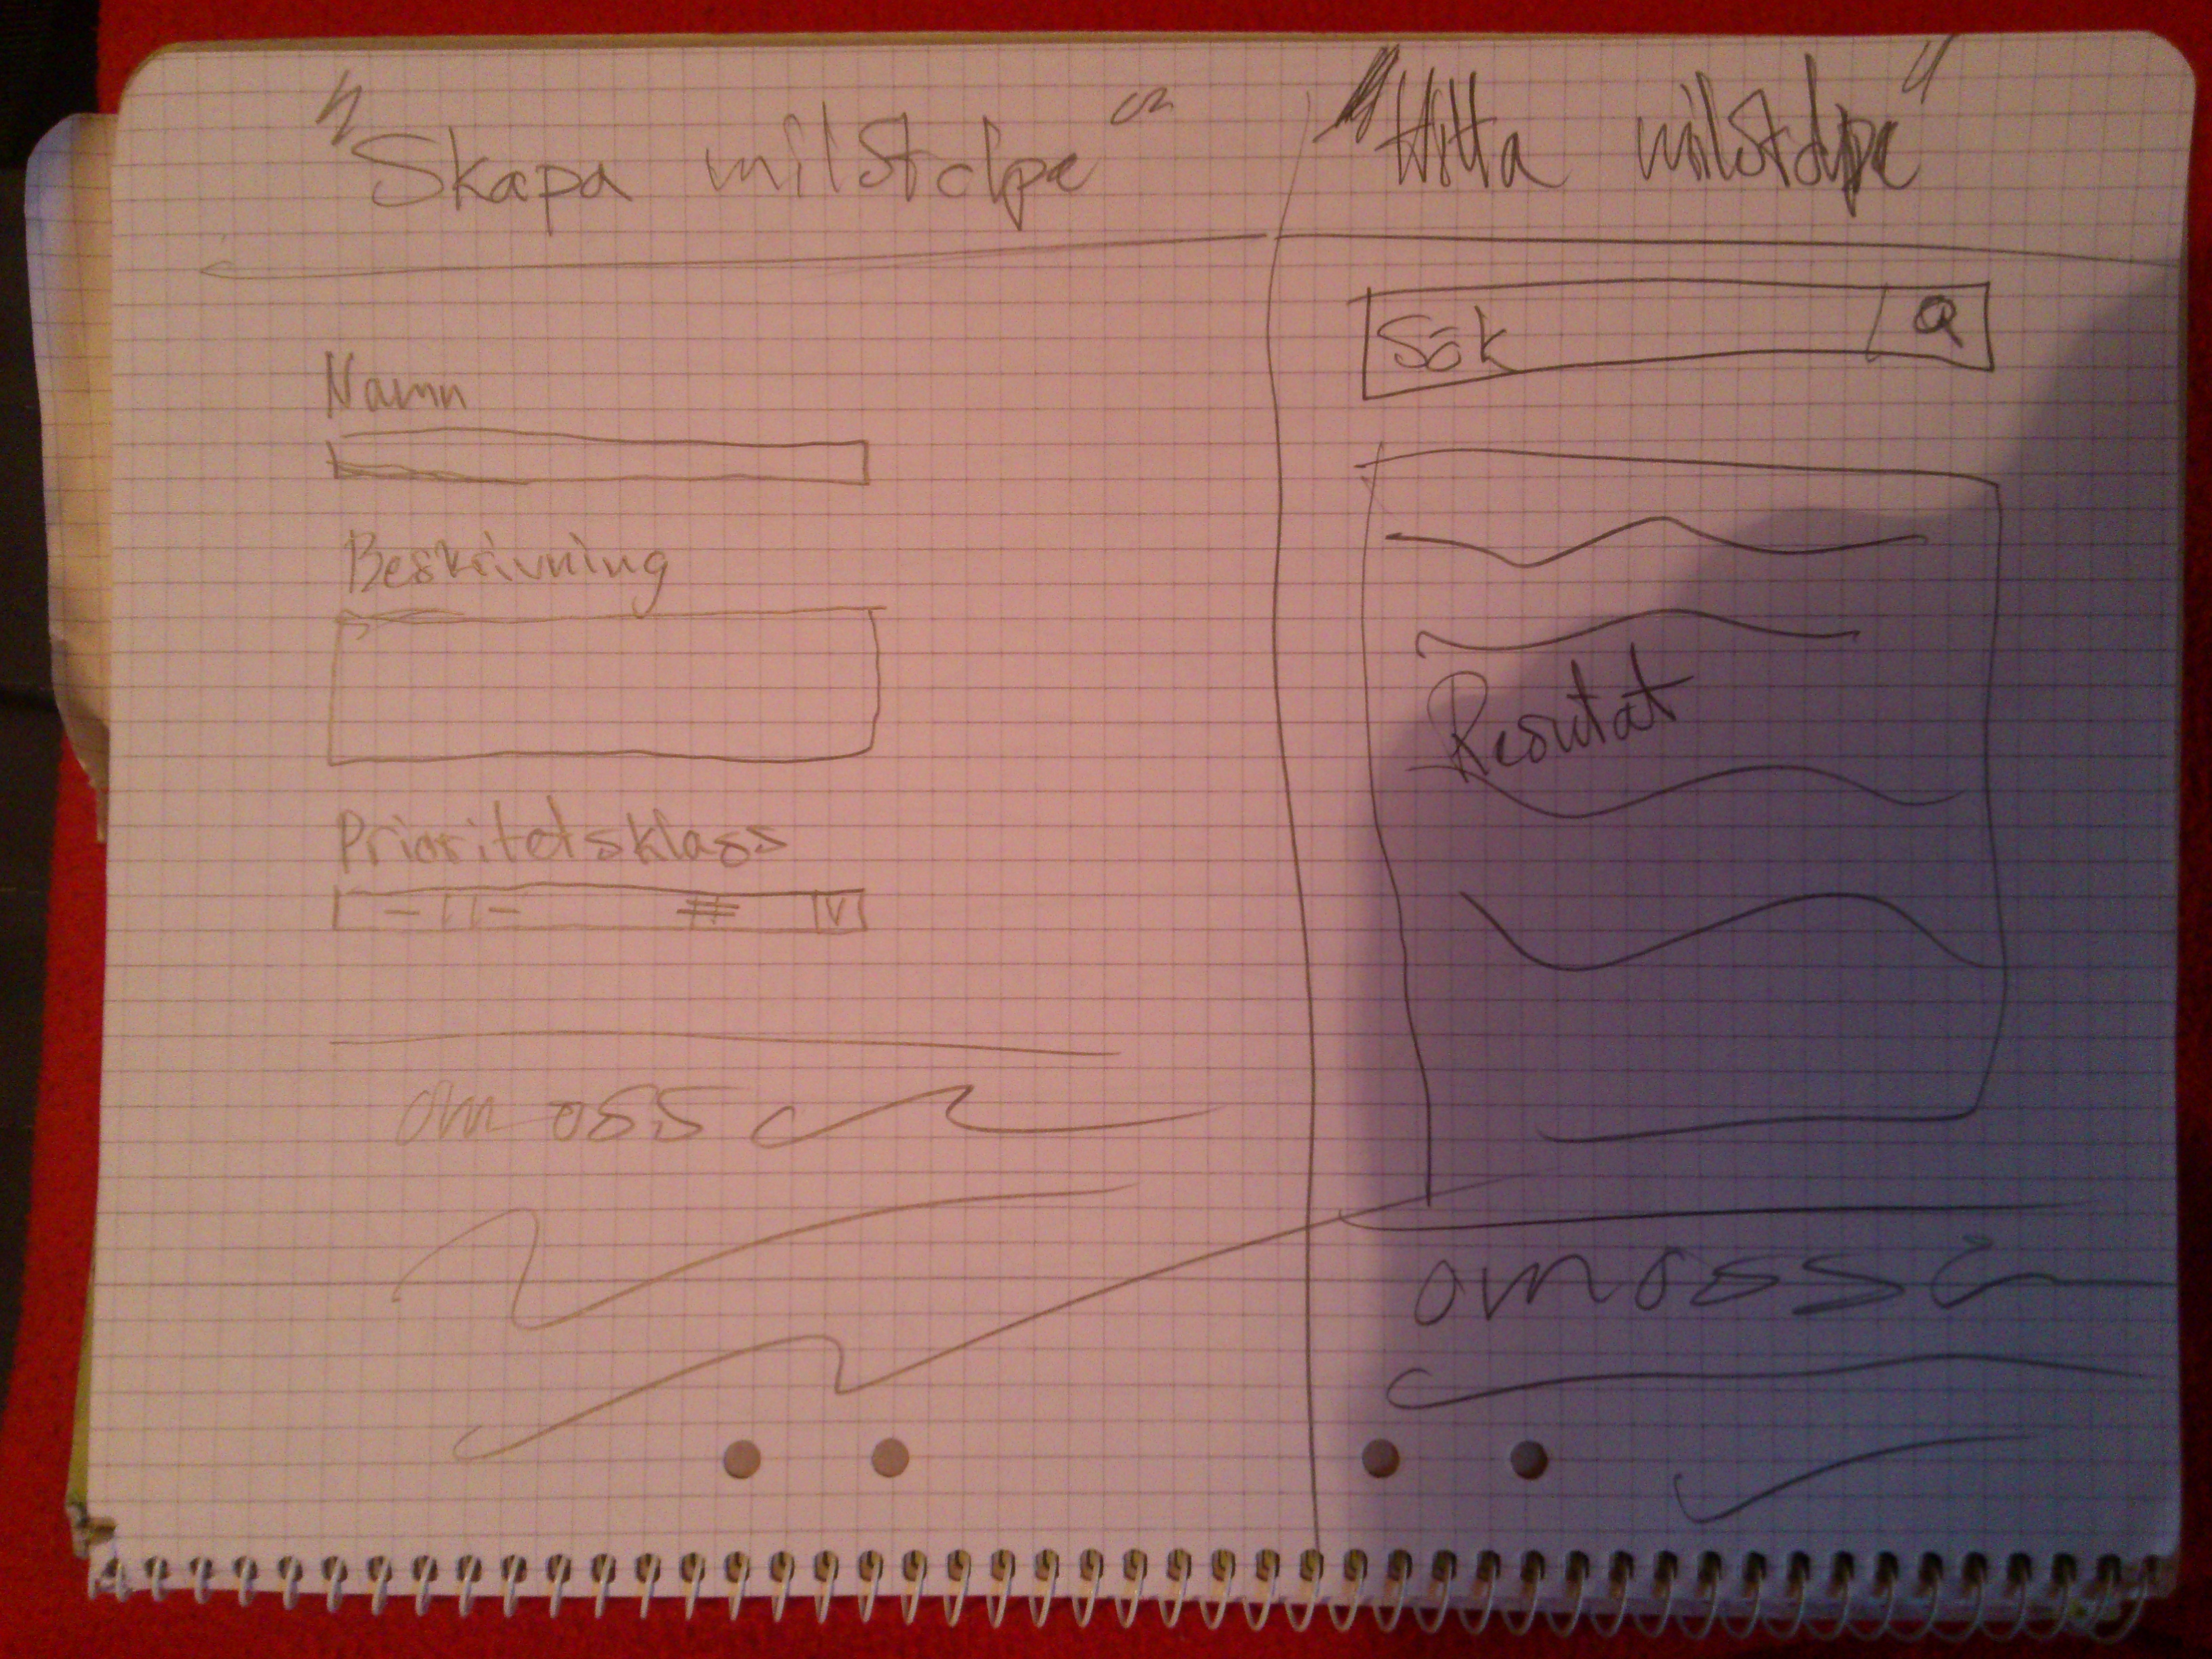 "Skapa milstolpe"
Namn
Beskrivning
Prioritetsklass
om oss
"Hitta milstolpe"
Sök
Resultat
om oss